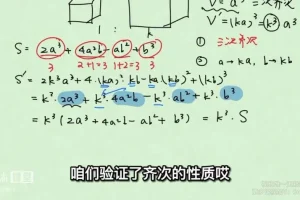 V = a³ 三次齐次
V' = (ka)³ = k³ a³
① 三次齐次
② a→ka, b→kb
S = 2a³ + 4a²b - ab² + b³
3 2+1=3 1+2=3 3
S' = 2k³a³ + 4·(ka)²·kb - ka(kb)² + (kb)³
= k³·2a³ + k³·4a²b - k³·ab² + k³·b³
= k³(2a³ + 4a²b - ab² + b³) = k³·S
咱们验证了齐次的性质哎